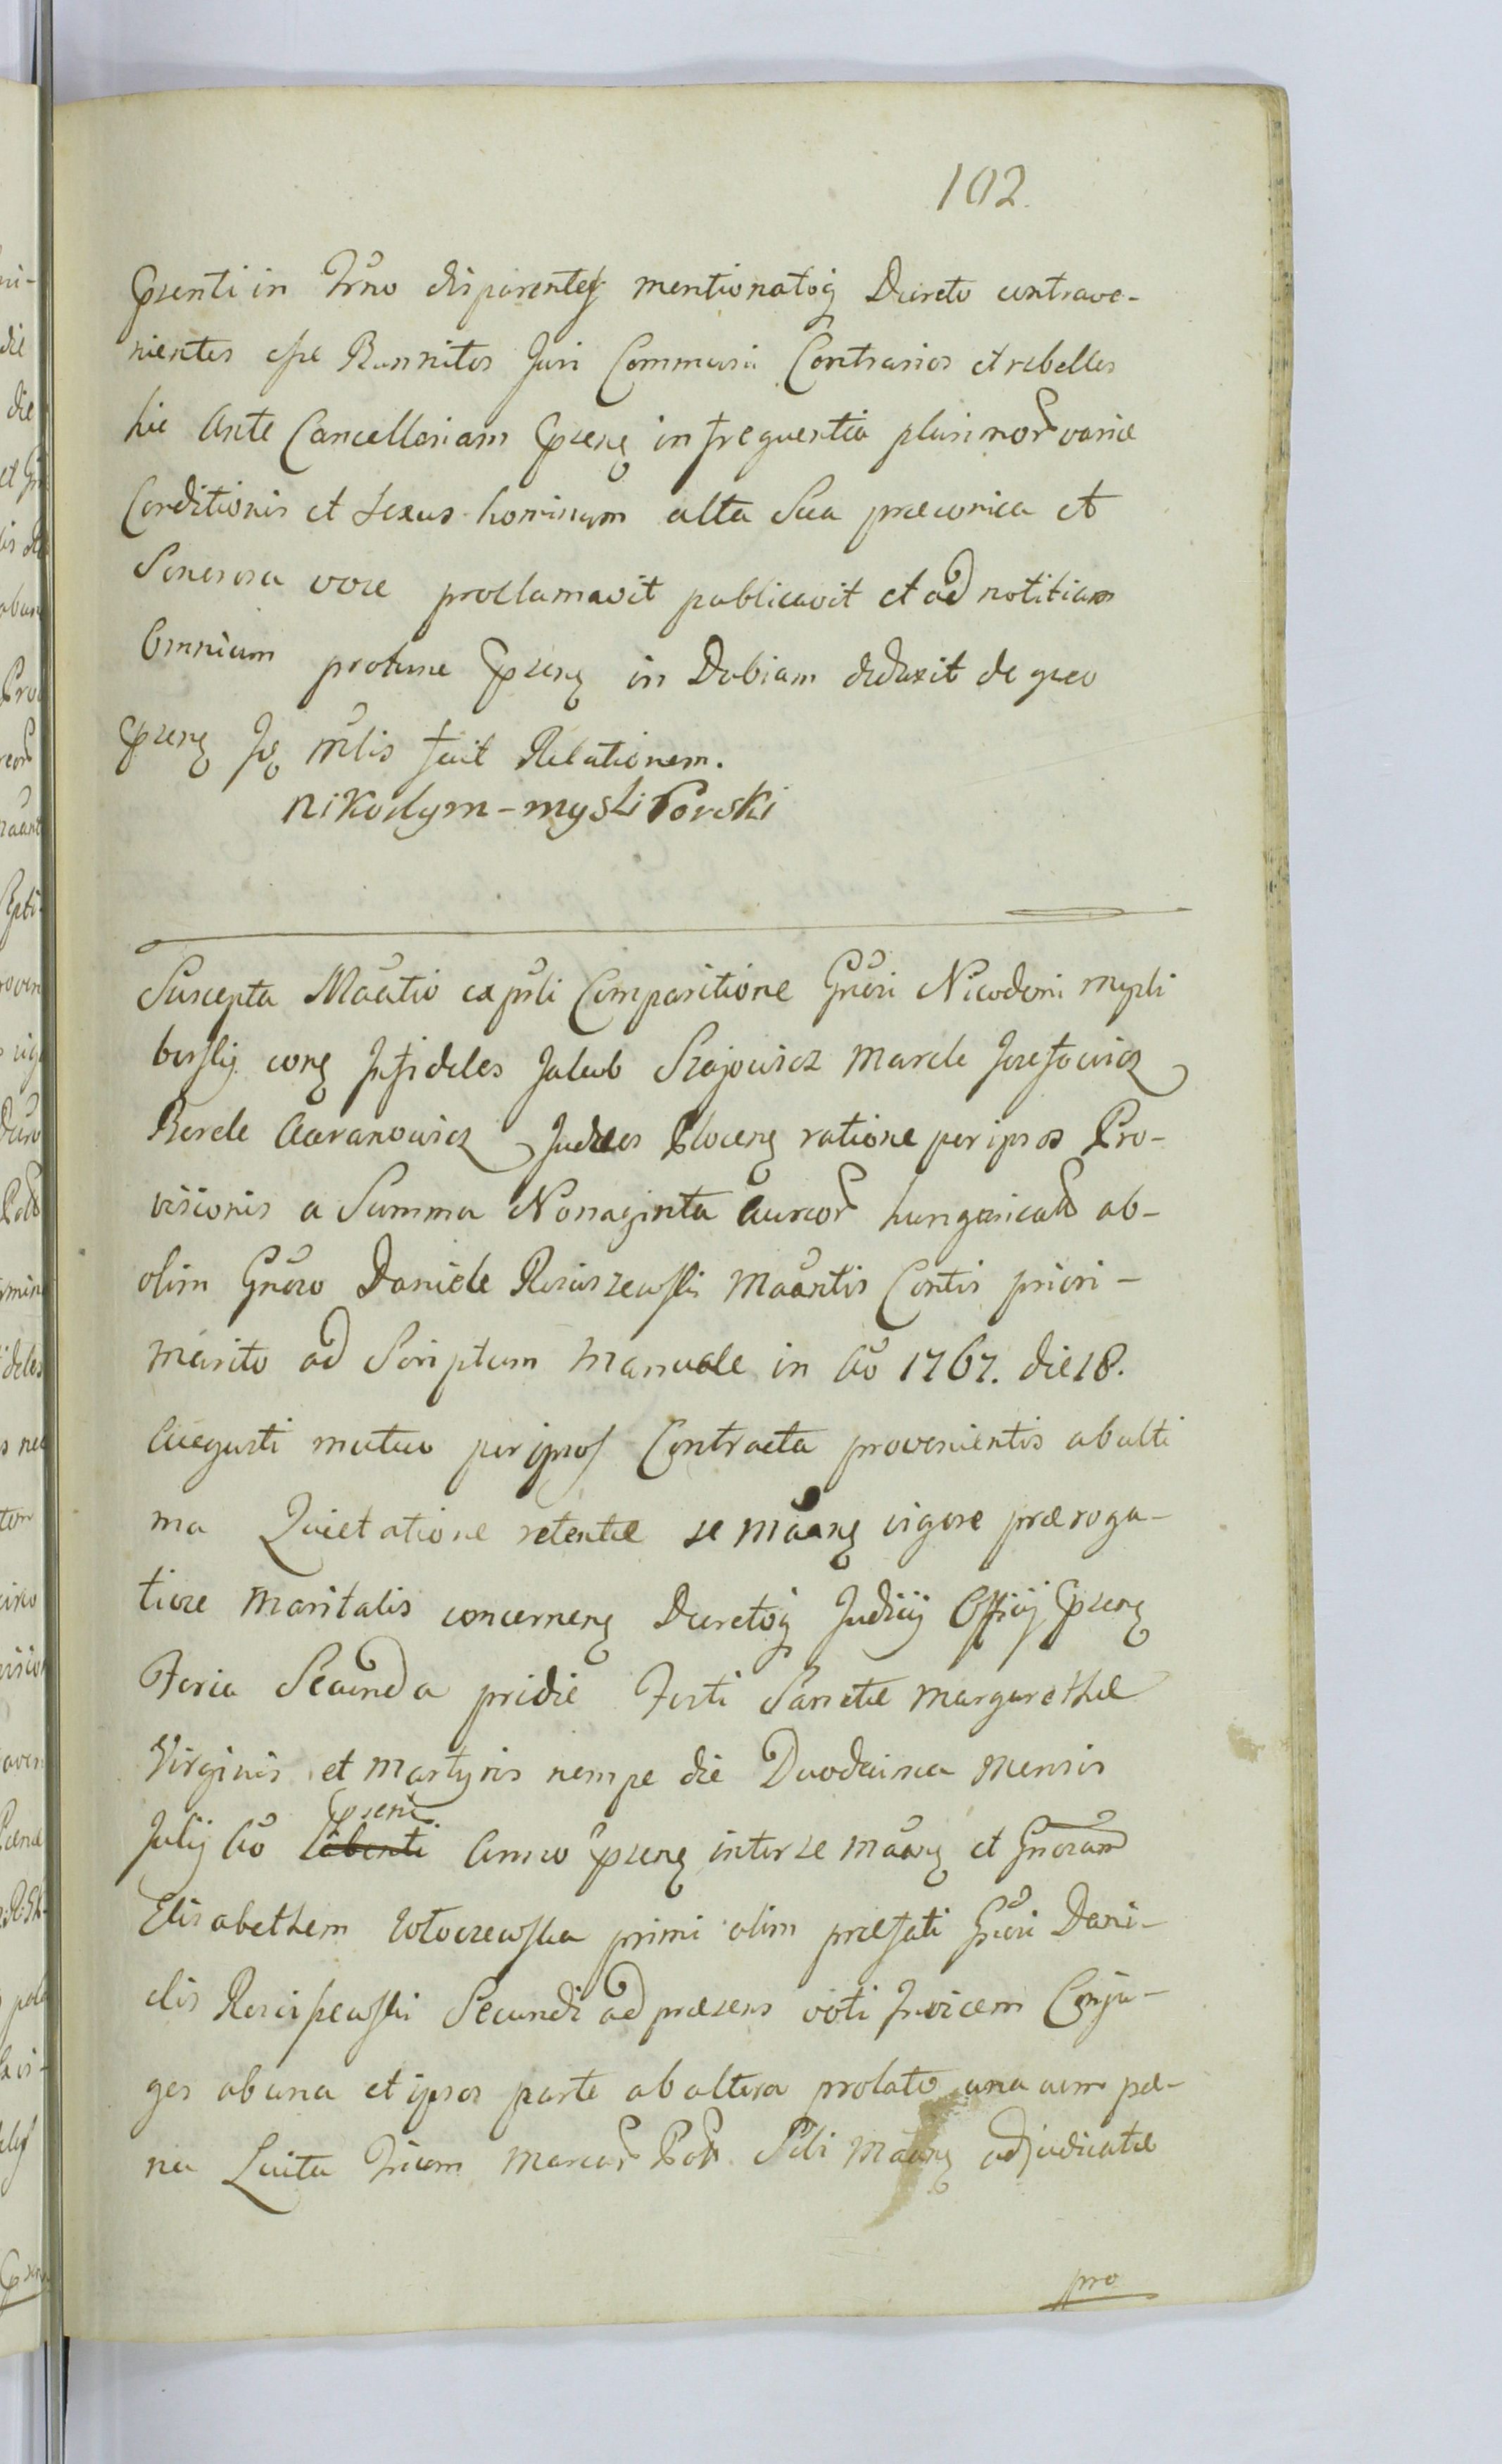 102.
Ppsenti in Trno disparentes mentionatoq Decreto contrave-
nientes esse Bannitos Juri Communi Contrarios et rebelles
hic Ante Cancellariam Ppsenę in frequentia plurimor variæ
Conditionis et sexus hominum alta Sua præconica et
Sonorosa voce proclamavit publicavit et ad notitiam
Omnium protunc Ppsenę in Dobiam deduxit de quo
Ppsenę mlis fecit Relationem.
nikodym-mysliborski
Suscepta Maatio ex psli Comparitione Gnosi Nicodemi mysli
borskij conę Infideles Jakub Szajowicz Marcle Jozefowicz
Bercle Aaranowicz Judæos Plocenę ratione per ipsos Pro-
visionis a Summa Nonaginta Aureor hungaricali ab-
olim Gnoso Daniele Rosciszewski Maantis Contis priori-
marito ad Scriptum Manuale in Ao 1767. die 18.
Augusti mutuo per ipsos Contracta provenientis ab ulti
ma Quietatione retentæ se maanę vigore præroga-
tivæ Maritalis concernenę Decretoq Judicij Officij Ppsenę
Feria Secunda pridie Festi Sanctæ Margarethæ
Virginis et Martyris nempe die Duodecima Mensis
Ppsenti
Julij Ao Labenti Anno Ppsenę inter se maanę et Gnosam
Elisabetham Wloczewska primi olim præfati Gnosi Dani-
elis Rosciszewski Secundi ad præsens voti Invicem Conju-
ges ab una et ipsos parte ab altera prolato una cum pæ-
na Luita Trium Marcar Pol Sibi Maanę adjudicatæ
pro